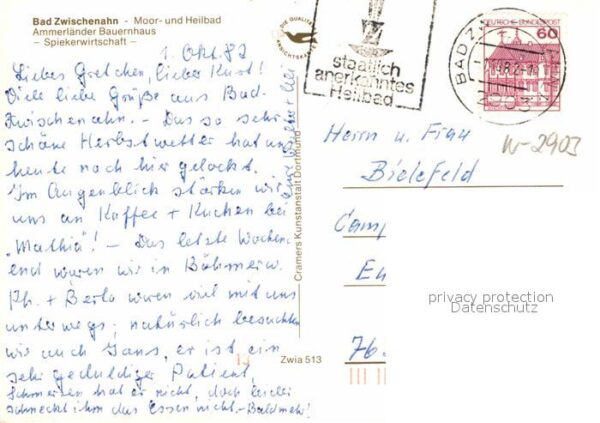 Bad Zwischenahn - Moor- und Heilbad
Ammerländer Bauernhaus
– Spiekerwirtschaft –
1. Okt. 82
Liebes Gretchen, lieber Kurt!
Viele liebe Grüße aus Bad-
Zwischenahn. – Das so sehr
schöne Herbstwetter hat uns
heute noch hier gelockt.
Im Augenblick stärken wir
uns an Kaffee + Kuchen bei
"Mathia"! – Das letzte Wochen-
end waren wir in Böhmerw.
Ph. + Berta waren viel mit uns
unterwegs, natürlich besuchten
wir auch Hans, er ist ein
sehr geduldiger Patient,
Schmerzen hat er nicht, doch leider
schmeckt ihm das Essen nicht. – Bald mehr!
DIE QUALITÄTS
ANSICHTSKARTE
Cramers Kunstanstalt Dortmund
Zwia 513
staatlich
anerkanntes
Heilbad
BAD Z
2903
DEUTSCHE BUNDESPOST
60
W-2903
Herrn u. Frau
Bielefeld
Camp
76.
privacy protection
Datenschutz